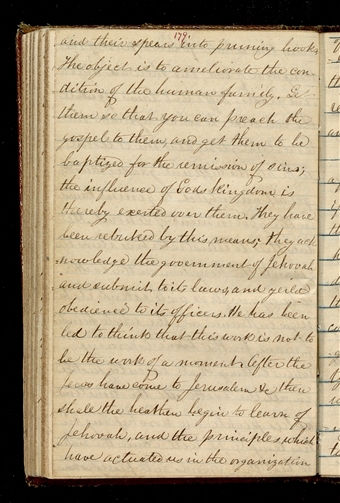 179.
and their spears into pruning hooks
The object is to ameliorate the con-
dition of the human family. Get
them so that you can preach the
gospel to them, and get them to be
baptized for the remission of sins;
the influence of Gods kingdom is
thereby exerted over them. They have
been rebuked by this means; they ack-
nowledge the government of Jehovah
and submit to its laws and yeild
obedience to its officers. He has been
led to think that this work is not to
be the work of a moment. After the
Jews have come to Jerusalem &c then
shall the heathen begin to learn of
Jehovah, and the principles which
have actuated us in the organization